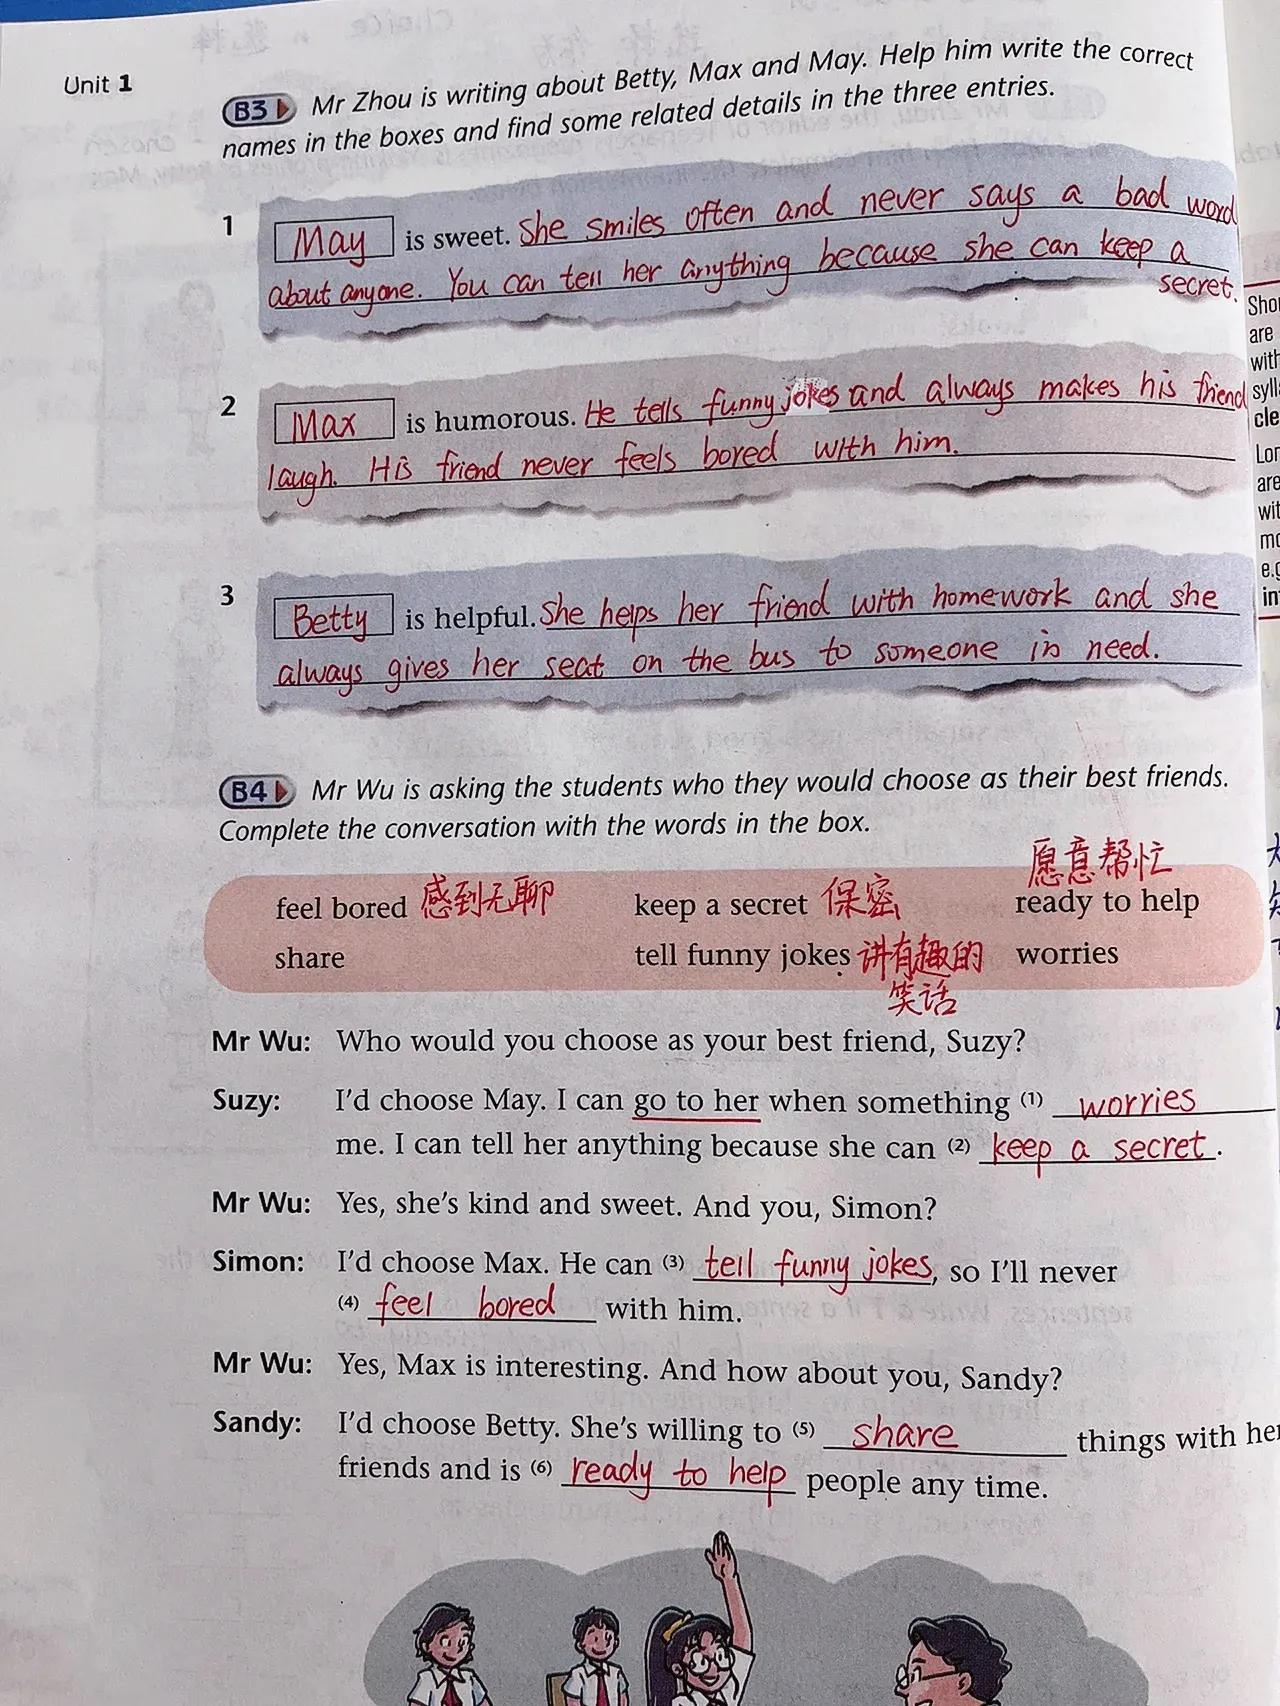 Unit 1
B3 Mr Zhou is writing about Betty, Max and May. Help him write the correct
names in the boxes and find some related details in the three entries.
1 May is sweet. She smiles often and never says a bad word
about anyone. You can tell her anything because she can keep a
secret.
2 Max is humorous. He tells funny jokes and always makes his friend
laugh. His friend never feels bored with him.
3 Betty is helpful. She helps her friend with homework and she
always gives her seat on the bus to someone in need.
B4 Mr Wu is asking the students who they would choose as their best friends.
Complete the conversation with the words in the box.
愿意帮忙
feel bored 感到无聊 keep a secret 保密 ready to help
share tell funny jokes 讲有趣的 worries
笑话
Mr Wu: Who would you choose as your best friend, Suzy?
Suzy: I'd choose May. I can go to her when something (1) worries
me. I can tell her anything because she can (2) keep a secret.
Mr Wu: Yes, she's kind and sweet. And you, Simon?
Simon: I'd choose Max. He can (3) tell funny jokes, so I'll never
(4) feel bored with him.
Mr Wu: Yes, Max is interesting. And how about you, Sandy?
Sandy: I'd choose Betty. She's willing to (5) share things with her
friends and is (6) ready to help people any time.
Sho
are
with
syll
cle
Lon
are
wit
mo
e.g
in